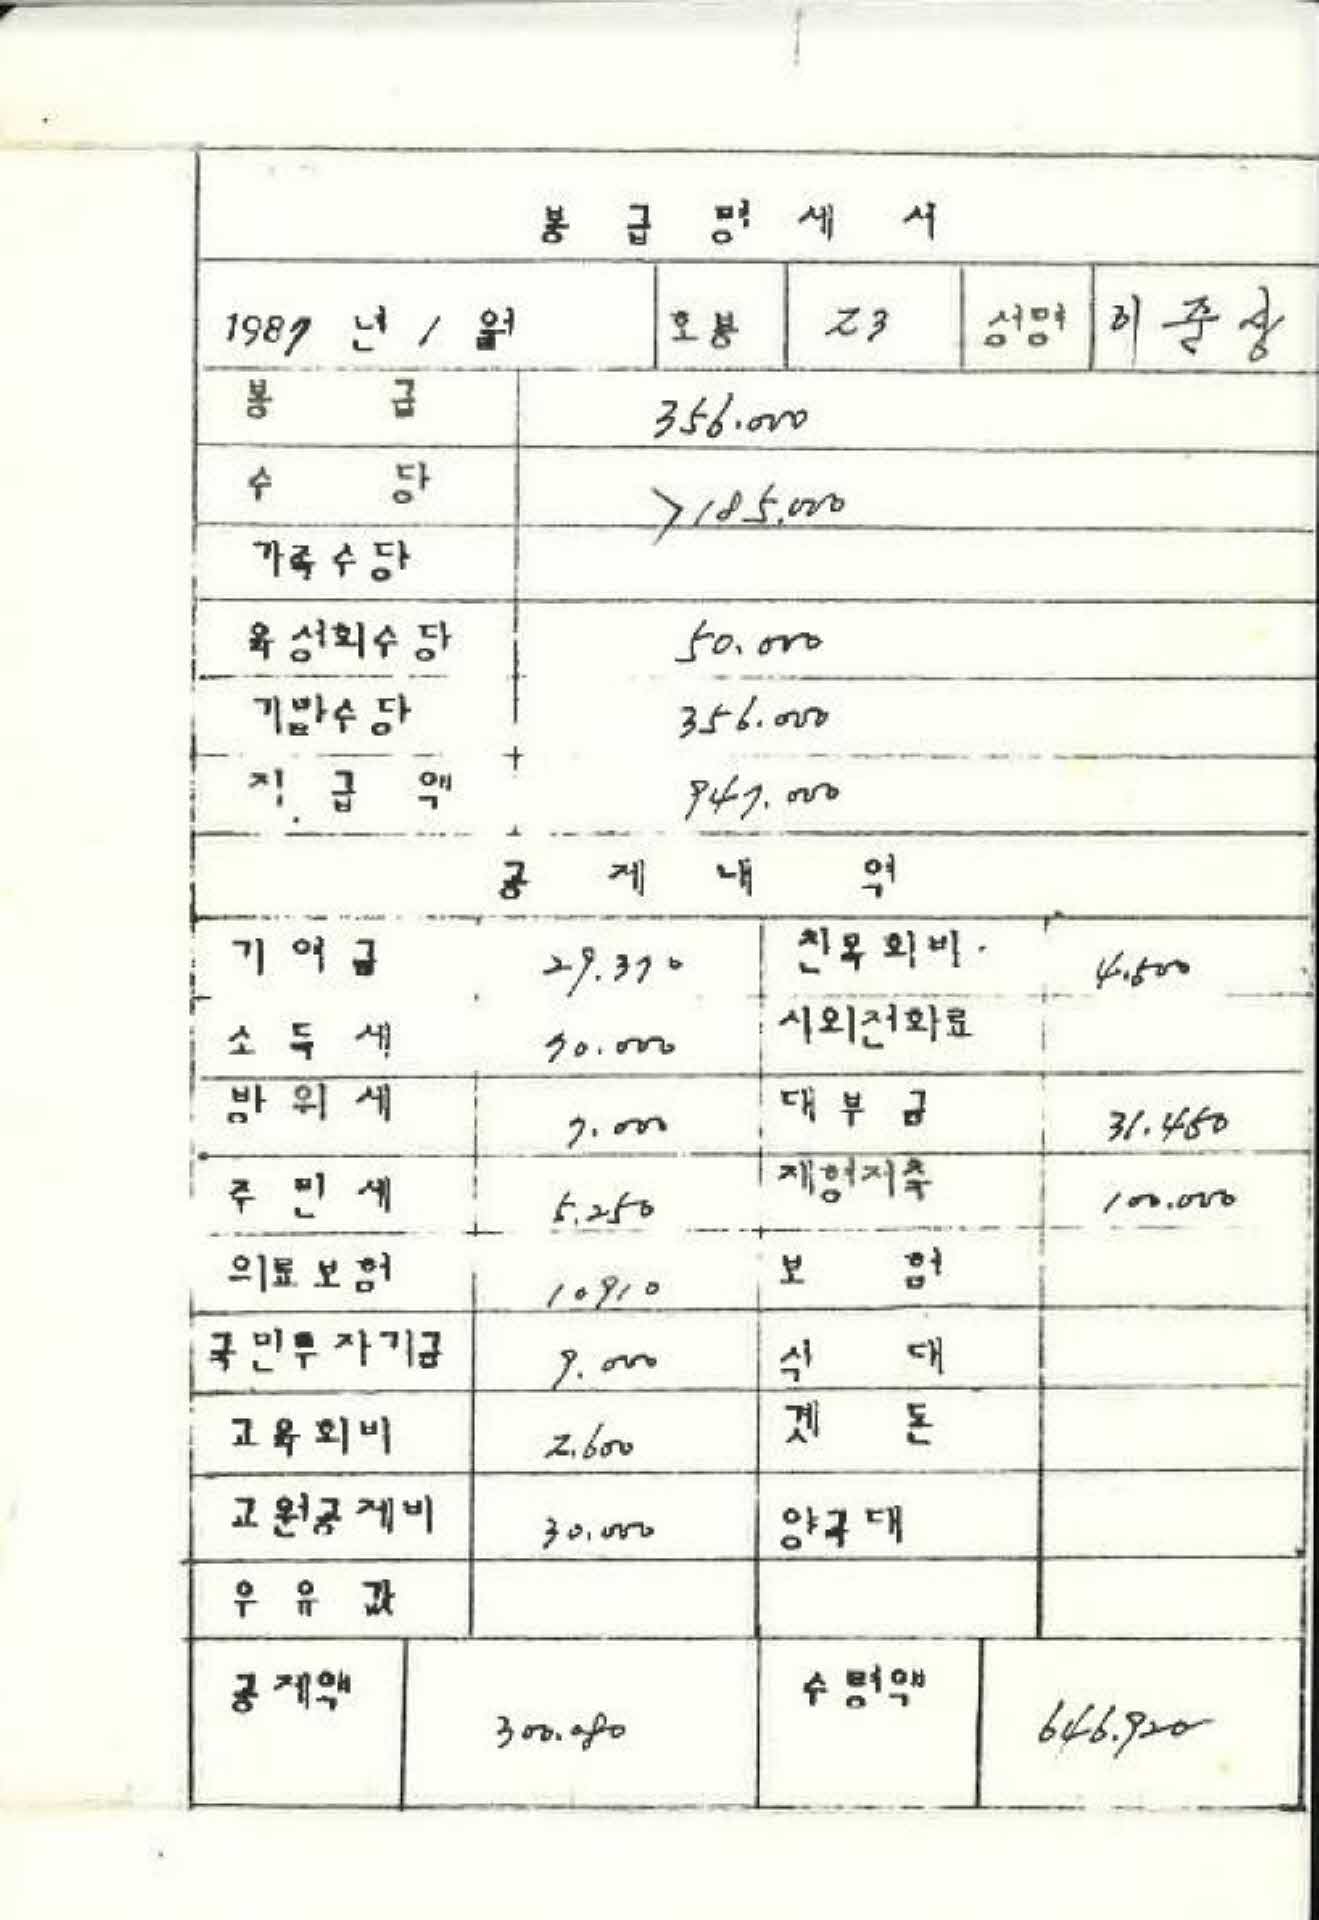 봉 급 명 세 서
1987 년 1 월 호봉 23 성명 이 준 상
봉 급 356.000
수 당 > 185.000
가족수당
육성회수당 50.000
기말수당 356.000
지 급 액 947.000
공 제 내 역
기 여 금 29.370 친목회비 4.500
소 득 세 70.000 시외전화료
방 위 세 7.000 대 부 금 31.450
주 민 세 5.250 재형저축 100.000
의료보험 10910 보 험
국민투자기금 9.000 식 대
교육회비 2.600 곗 돈
교원공제비 30.000 양곡대
우 유 값
공제액 300.080 수령액 646.920